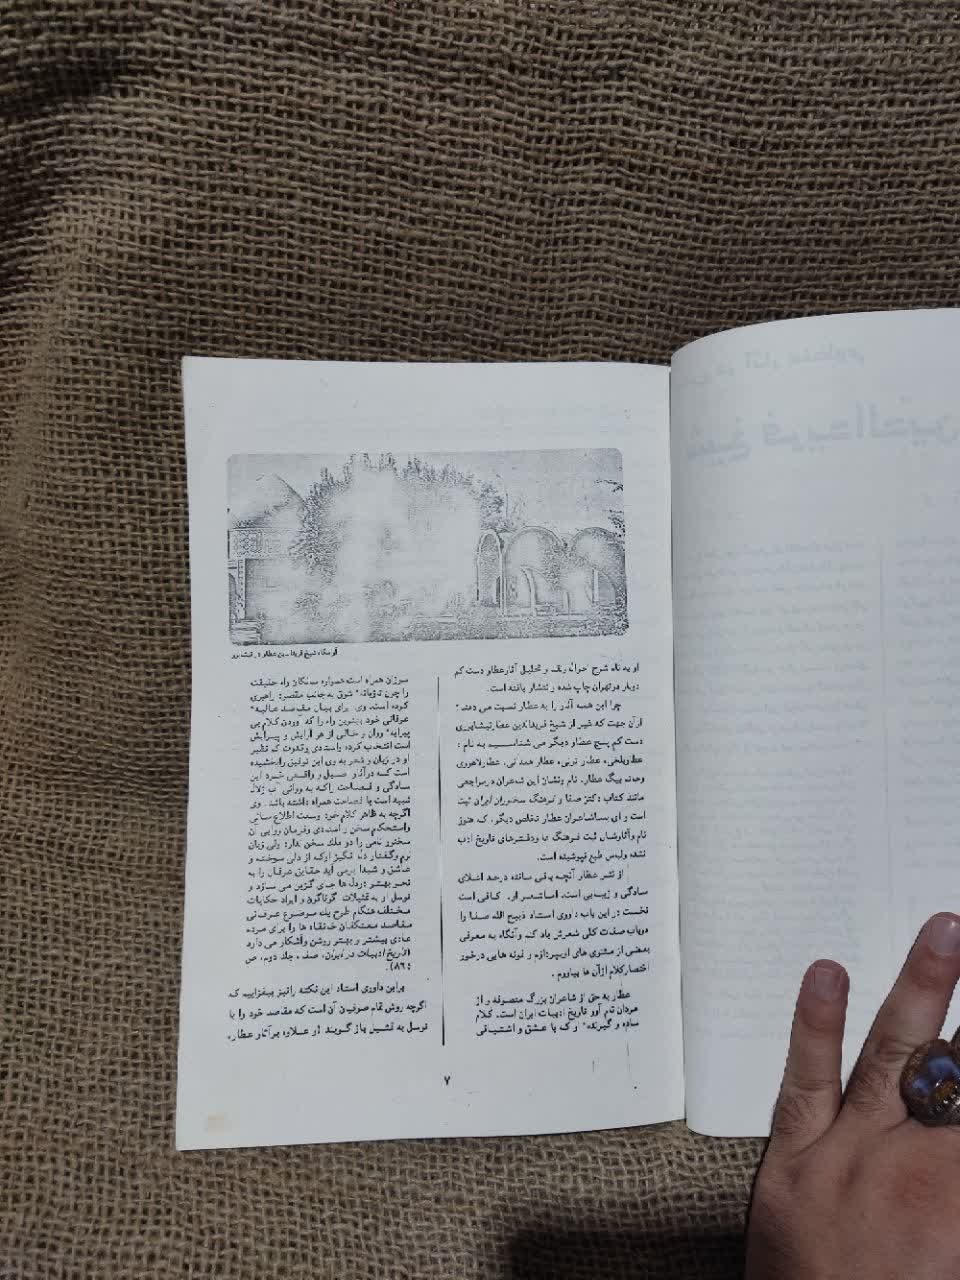 آرامگاه شیخ فریدالدین عطار در نیشابور
او به نام شرح احوال و نقد و تحلیل آثار عطار دست کم
دوبار در تهران چاپ شده و انتشار یافته است.
چرا این همه آثار را به عطار نسبت می دهند؟
از آن جهت که غیر از شیخ فریدالدین عطار نیشابوری
دست کم پنج عطار دیگر می شناسیم به نام :
عطار بلخی، عطار تونی، عطار همدانی، عطار لاهوری
و خانه بیگ عطار. نام و نشان این شاعران در مراجعی
مانند کتاب دکتر صفا و فرهنگ سخنوران ایران ثبت
است و ای بسا شاعران عطار تخلص دیگر، که هنوز
نام و آثارشان ثبت فرهنگ ها و دفترهای تاریخ ادب
نشده و لباس طبع نپوشیده است.
از نثر عطار آنچه باقی مانده در حد اعلای
سادگی و زیبایی است. اما شعر او. کافی است
نخست در این باب داوری استاد ذبیح الله صفا را
در باب صفت کلی شعرش یاد کنم و آنگاه به معرفی
بعضی از مثنوی های او بپردازم و نمونه هایی درخور
اختصار کلام از آن ها بیاورم.
عطار به حق از شاعران بزرگ متصوفه و از
مردان نام آور تاریخ ادبیات ایران است. کلام
ساده و گیرنده او که با عشق و اشتیاقی
سوزان همراه است همواره سالکان راه حقیقت
را چون تازیانه شوق به جانب مقصود راهبری
کرده است. وی برای بیان مقاصد عالیه
عرفانی خود بهترین راه را که آوردن کلام بی
پیرایه روان و خالی از هر آرایش و پیرایش
است انتخاب کرده و استادی و قدرت کم نظیر
او در زبان و شعر به وی این توفیق را بخشیده
است که در آثار اصیل و واقعی خود این
سادگی و فصاحت را که به روانی آب زلال
شبیه است با فصاحت همراه داشته باشد. وی
اگرچه به ظاهر کلام خود وسعت اطلاع سنائی
و استحکام سخن و استادی و فرمانروایی آن
سخنور نامی را در ملک سخن ندارد ولی زبان
نرم و گفتار دل انگیز او که از دلی سوخته و
عاشق و شیدا برمی آید حقایق عرفان را به
نحو بهتر در دل ها جای گزین می سازد و
توسل او به تمثیلات گوناگون و ایراد حکایات
مختلف هنگام طرح یک موضوع عرفانی
مقاصد معتکفان خانقاه ها را برای مردم
عادی بیشتر و بهتر روشن و آشکار می دارد
(تاریخ ادبیات در ایران، صفا، جلد دوم، ص
۸۶۱).
بر این داوری استاد این نکته را نیز بیفزاییم که
اگرچه روش تمام صوفیان آن است که مقاصد خود را با
توسل به تمثیل بازگویند (و علاوه بر آثار عطار،
۷